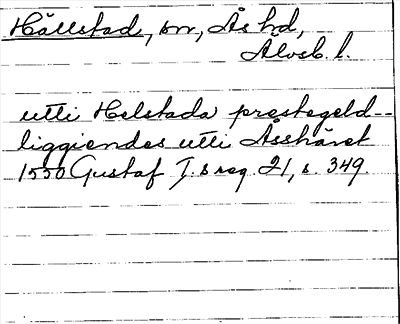 Hällstad, sn, Ås hd,
Älvsb. l.
utti Helstada prestegeld--
liggiendes utti Åsshäret
1550 Gustaf I:s reg. 21, s. 349.